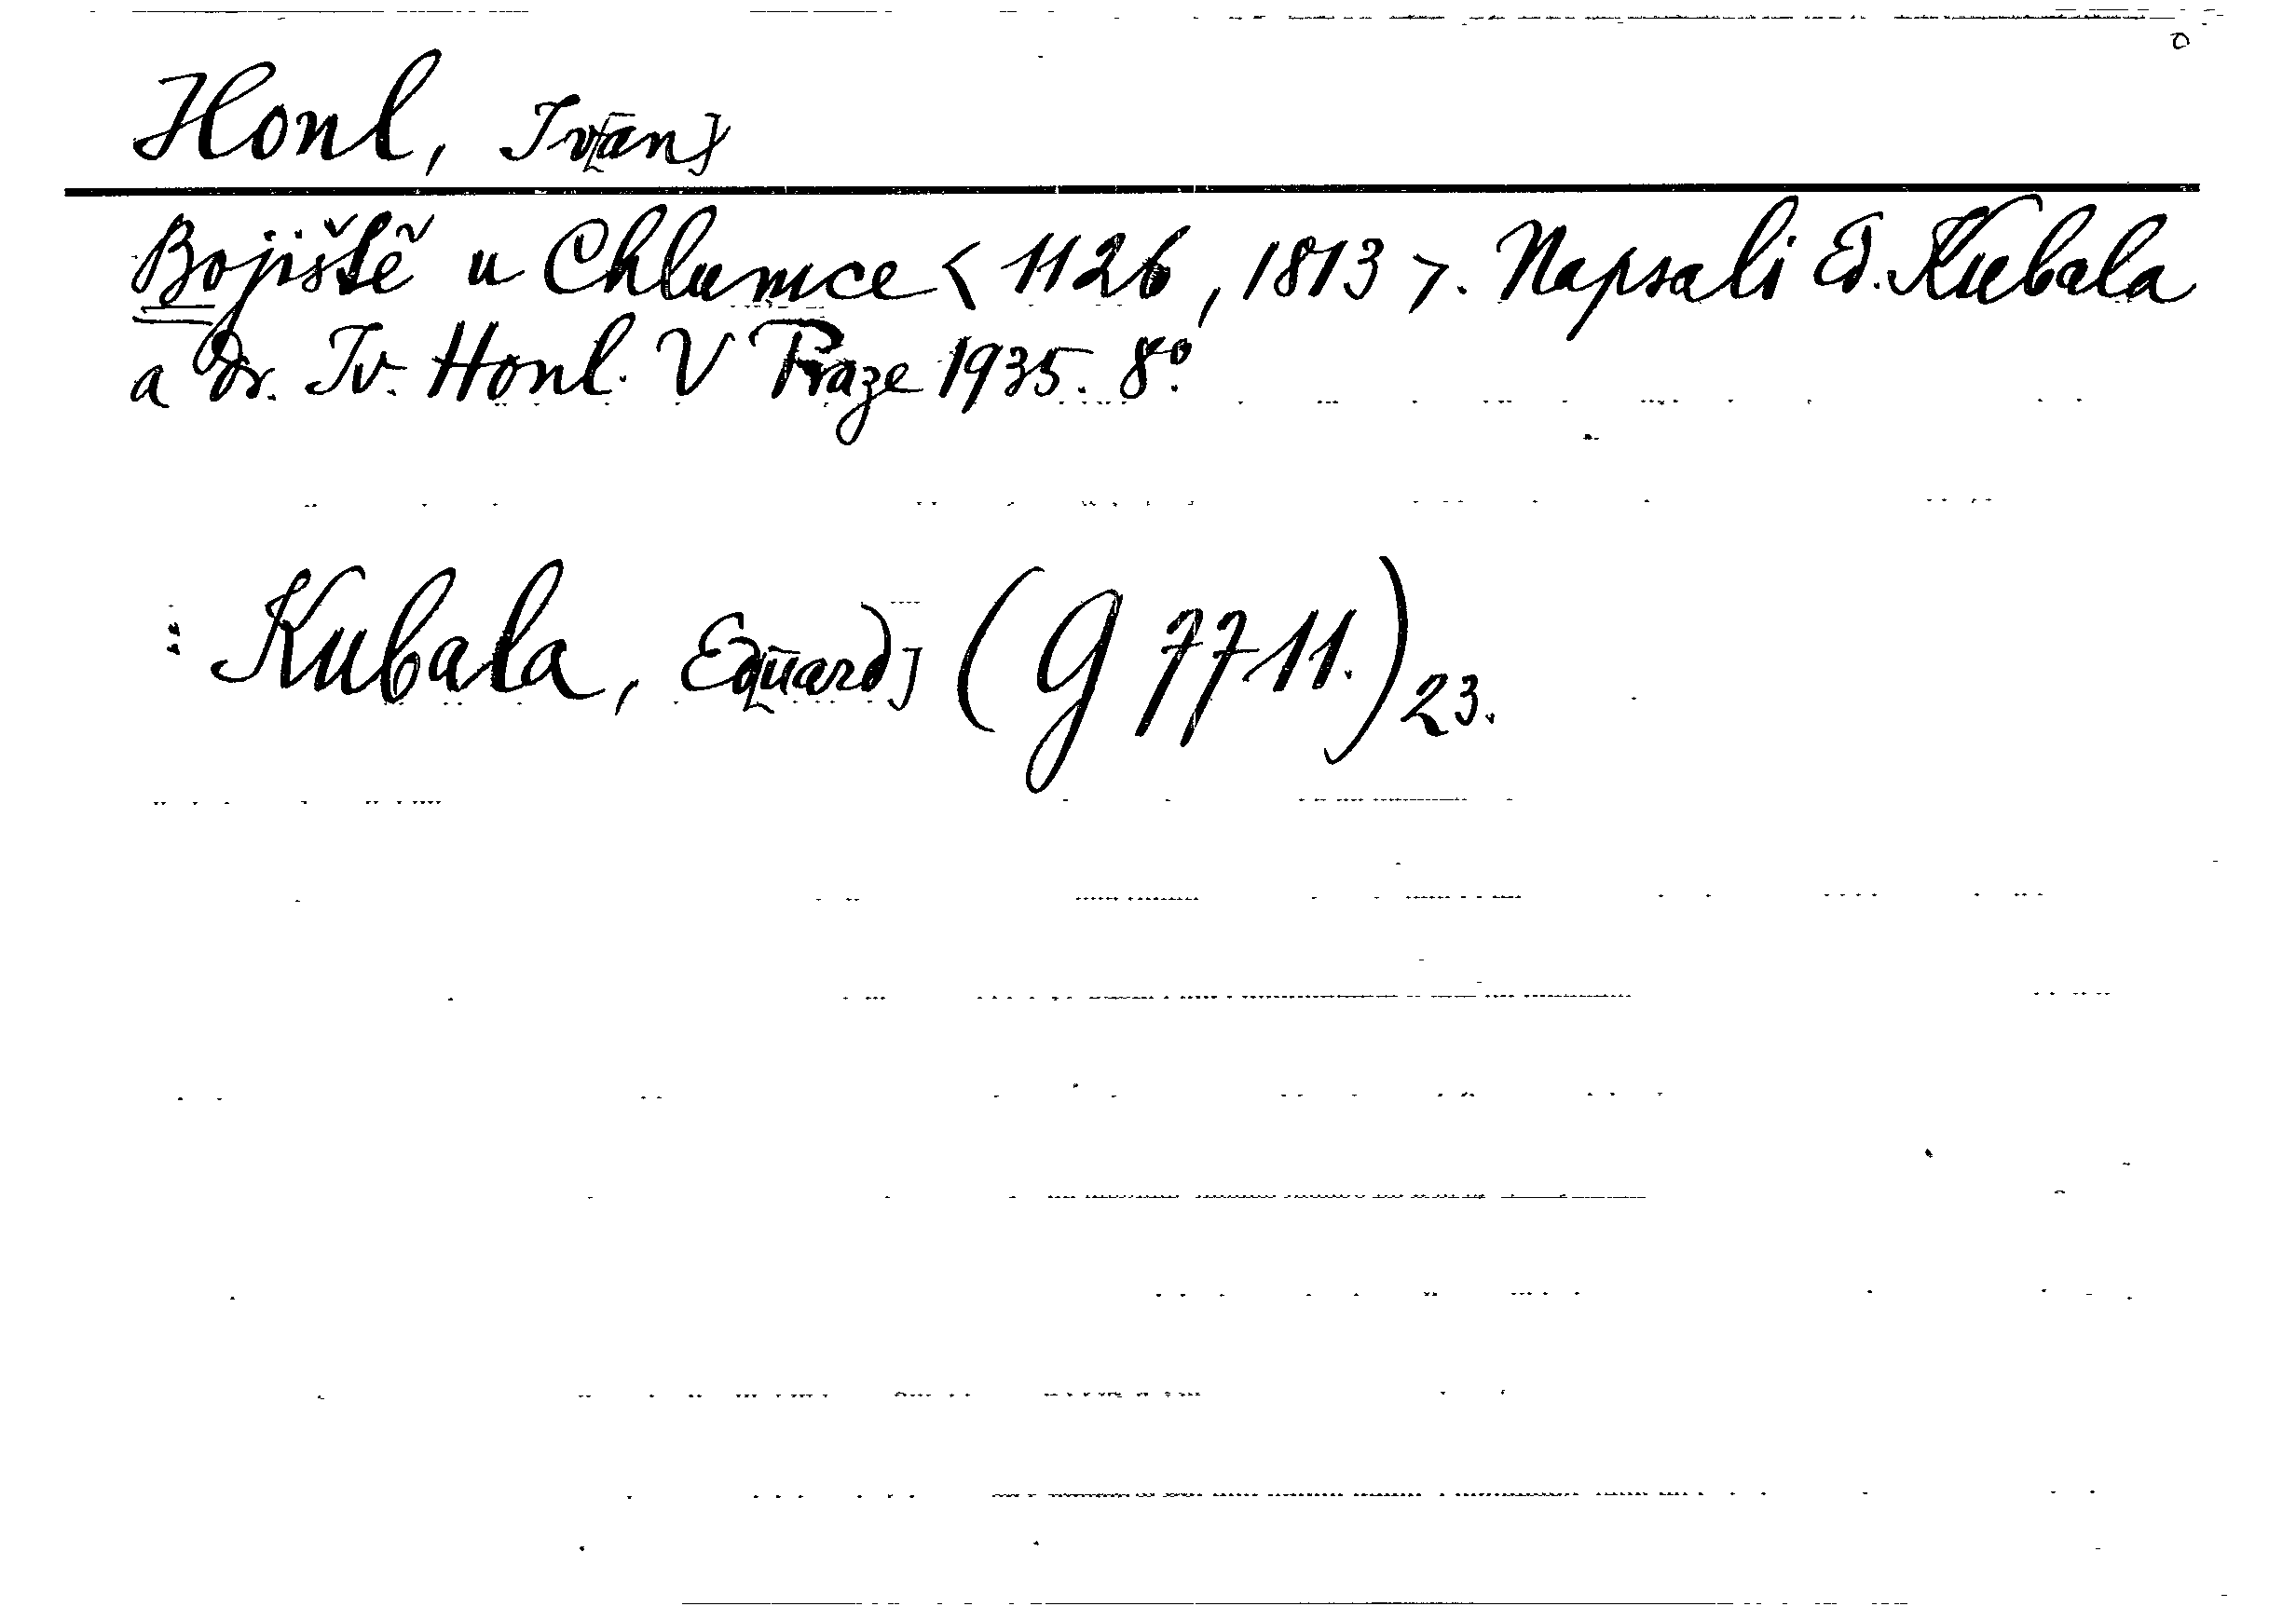 Honl, Iv[an]
Bojiště u Chlumce < 1126, 1813 >. Napsali Ed. Kubala
a Dr. Iv. Honl. V Praze 1935. 8°.
: Kubala, Ed[uard] (G 7711.) 23.